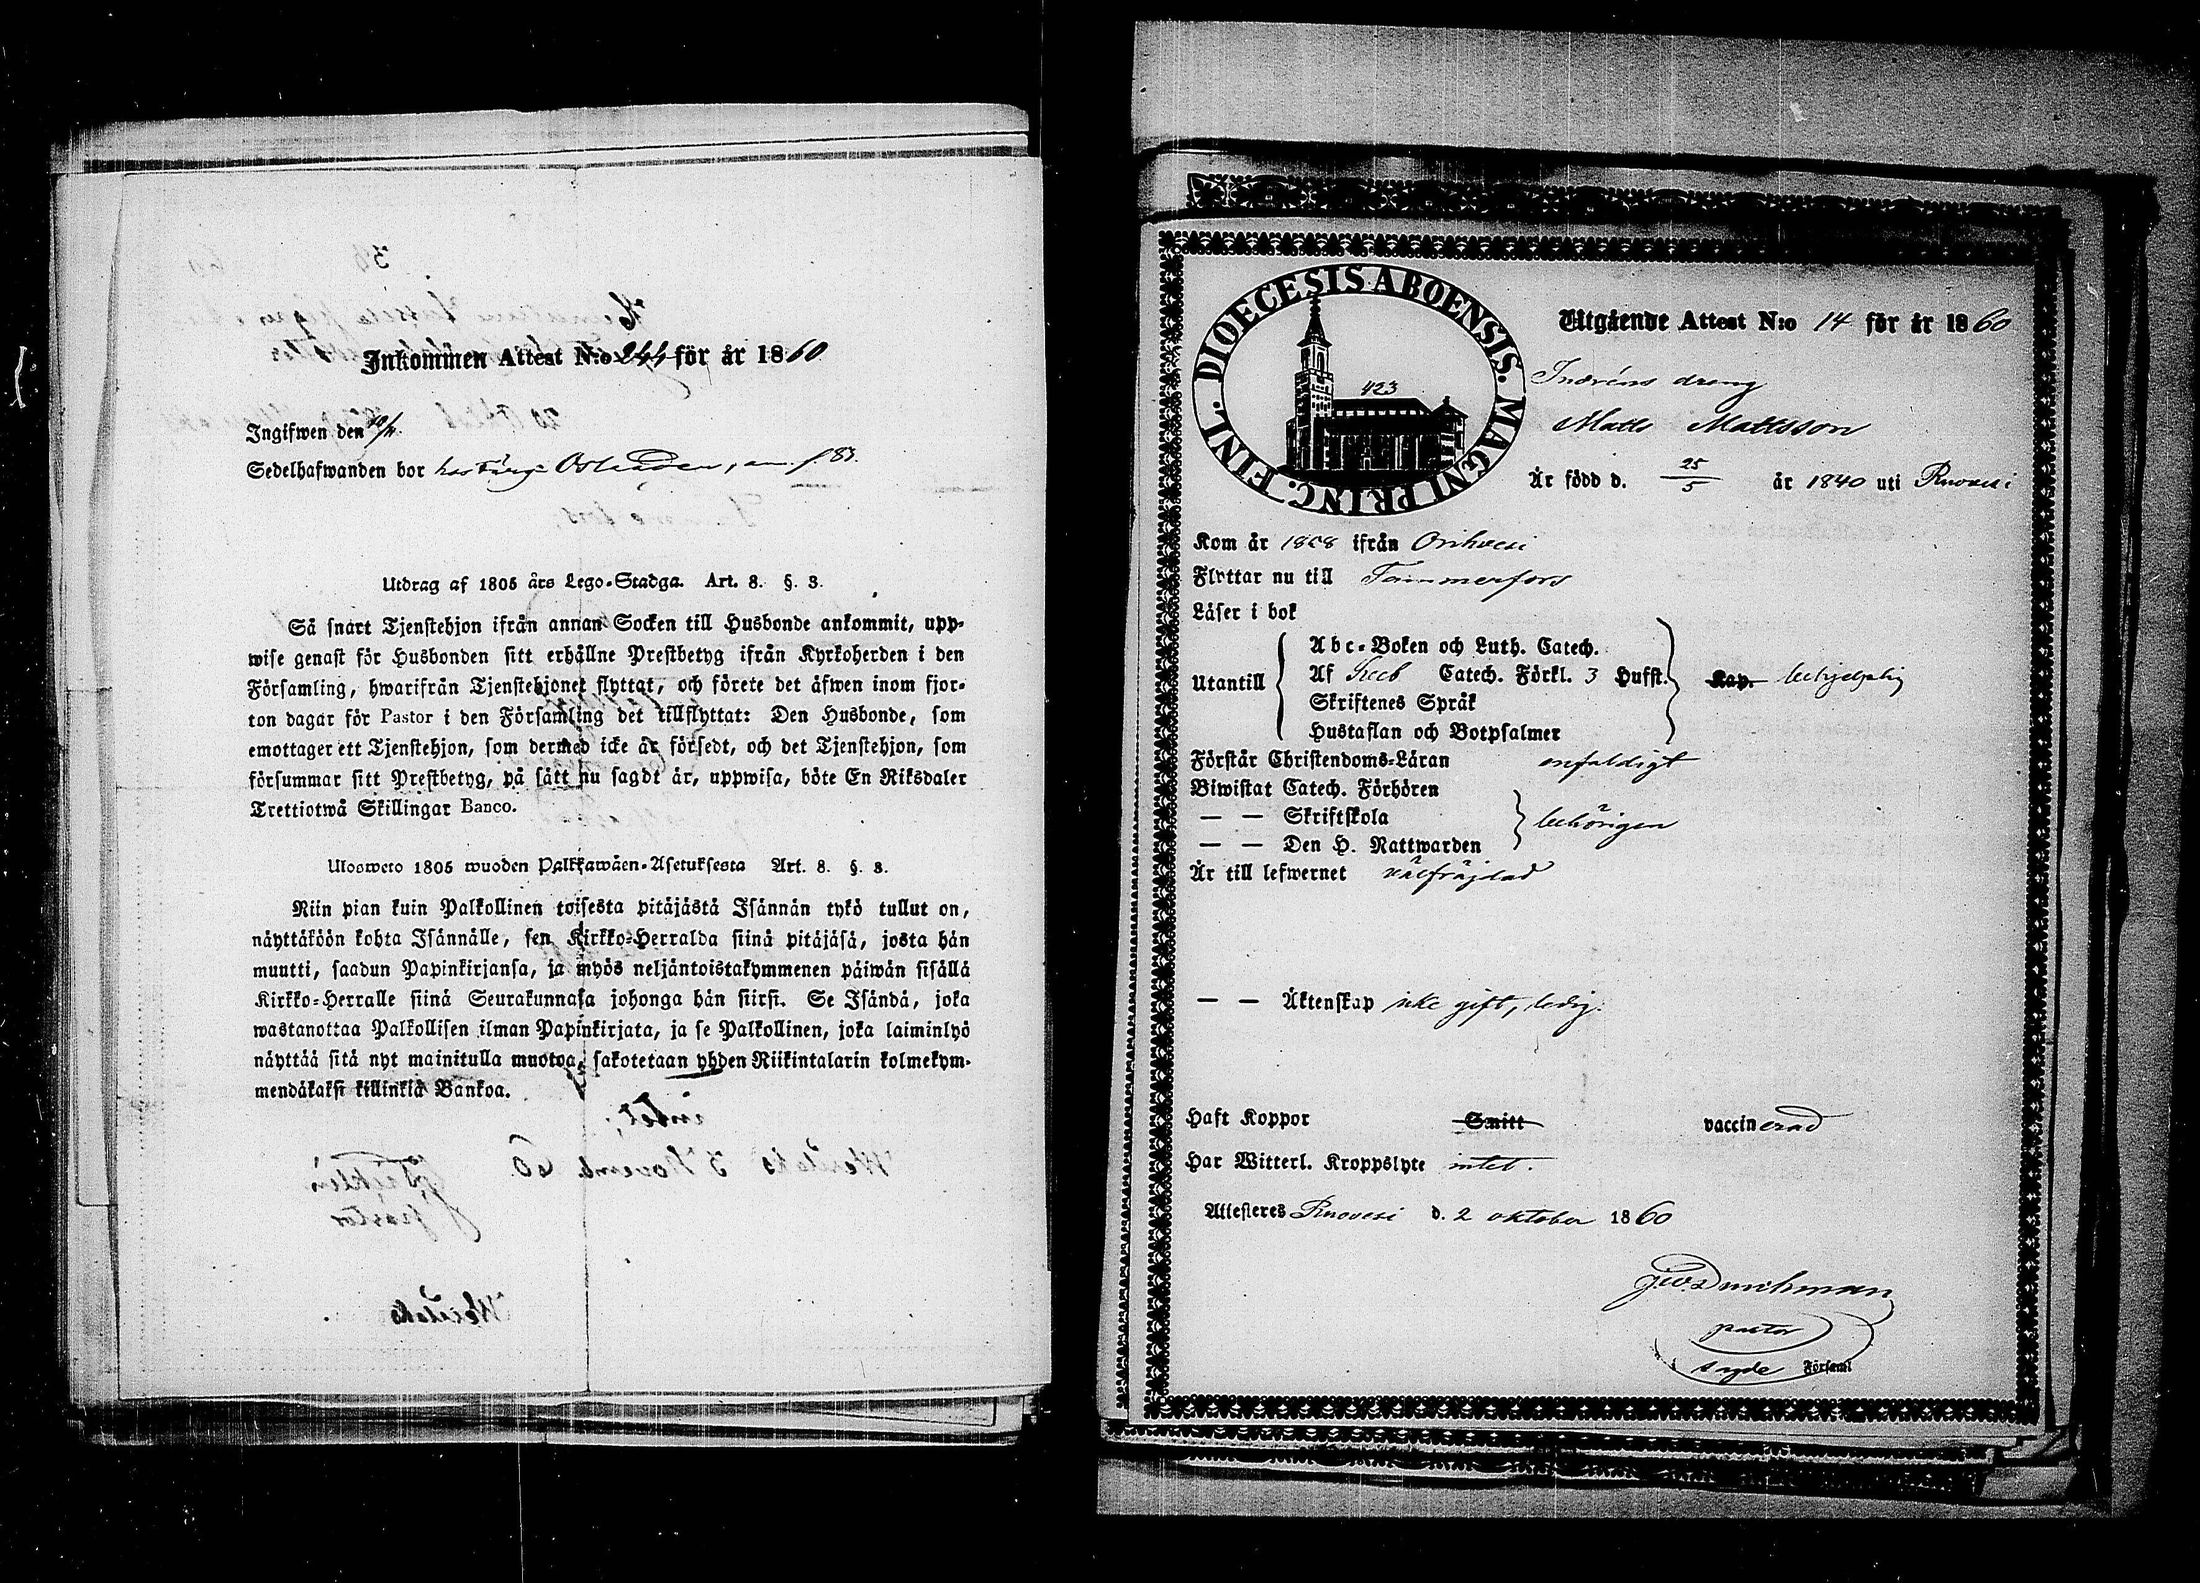 Inkommen Attest N:o 244 för år 1860
Ingifwen den 10/11
Sedelhafwanden bor hos
Utdrag af 1805 års Lego-Stadga. Art. 8. §. 3.
Så snart Tjenstehjon ifrån annan Socken till Husbonde ankommit, upp-
wise genast för Husbonden sitt erhållne Prestbetyg ifrån Kyrkoherden i den
Församling, hwarifrån Tjenstehjonet flyttat, och förete det äfwen inom fjor-
ton dagar för Pastor i den Församling det tillflyttat: Den Husbonde, som
emottager ett Tjenstehjon, som dermed icke är försedt, och det Tjenstehjon, som
försummar sitt Prestbetyg, på sätt nu sagdt är, uppwisa, böte En Riksdaler
Trettiotwå Skillingar Banco.
Ulosweto 1805 wuoden Palkkawäen-Asetuksesta Art. 8. §. 3.
Niin pian kuin Palkollinen toisesta pitäjästä Isännän tykö tullut on,
näyttäköön kohta Isännälle, sen Kirkko-Herralda siinä pitäjäsä, josta hän
muutti, saadun Papinkirjansa, ja myös neljäntoistakymmenen päiwän sisällä
Kirkko-Herralle siinä Seurakunnasa johonga hän siirsi. Se Isändä, joka
wastanottaa Palkollisen ilman Papinkirjata, ja se Palkollinen, joka laiminlyö
näyttää sitä nyt mainitulla muotoa, sakotetaan yhden Riikintalarin kolmekym-
mendäkaksi killinkiä Bankoa.
DIOECESIS ABOENSIS. MAGNI PRINC. FINL.
423
Utgående Attest N:o 14 för år 1860
dreng
Matts Mattsson
År född d. 25/5 år 1840 uti Ruovesi
Kom år ifrån Orihvesi
Flyttar nu till Tammerfors
Läser i bok
Utantill
Abc-Boken och Luth. Catech.
Af Catech. Förkl. 3 Hufst.
Skriftenes Språk
Hustaflan och Botpsalmer
Kap. behjelplig
Förstår Christendoms-Läran enfaldigt
Biwistat Catech. Förhören
— — Skriftskola
— — Den H. Nattwarden
behörigen
Är till lefwernet välfräjdad
— — Äktenskap icke gift, ledig.
Haft Koppor Smitt vaccinerad
Har Witterl. Kroppslyte intet.
Attesteras Ruovesi d. 2 oktober 1860
pastor
Församl